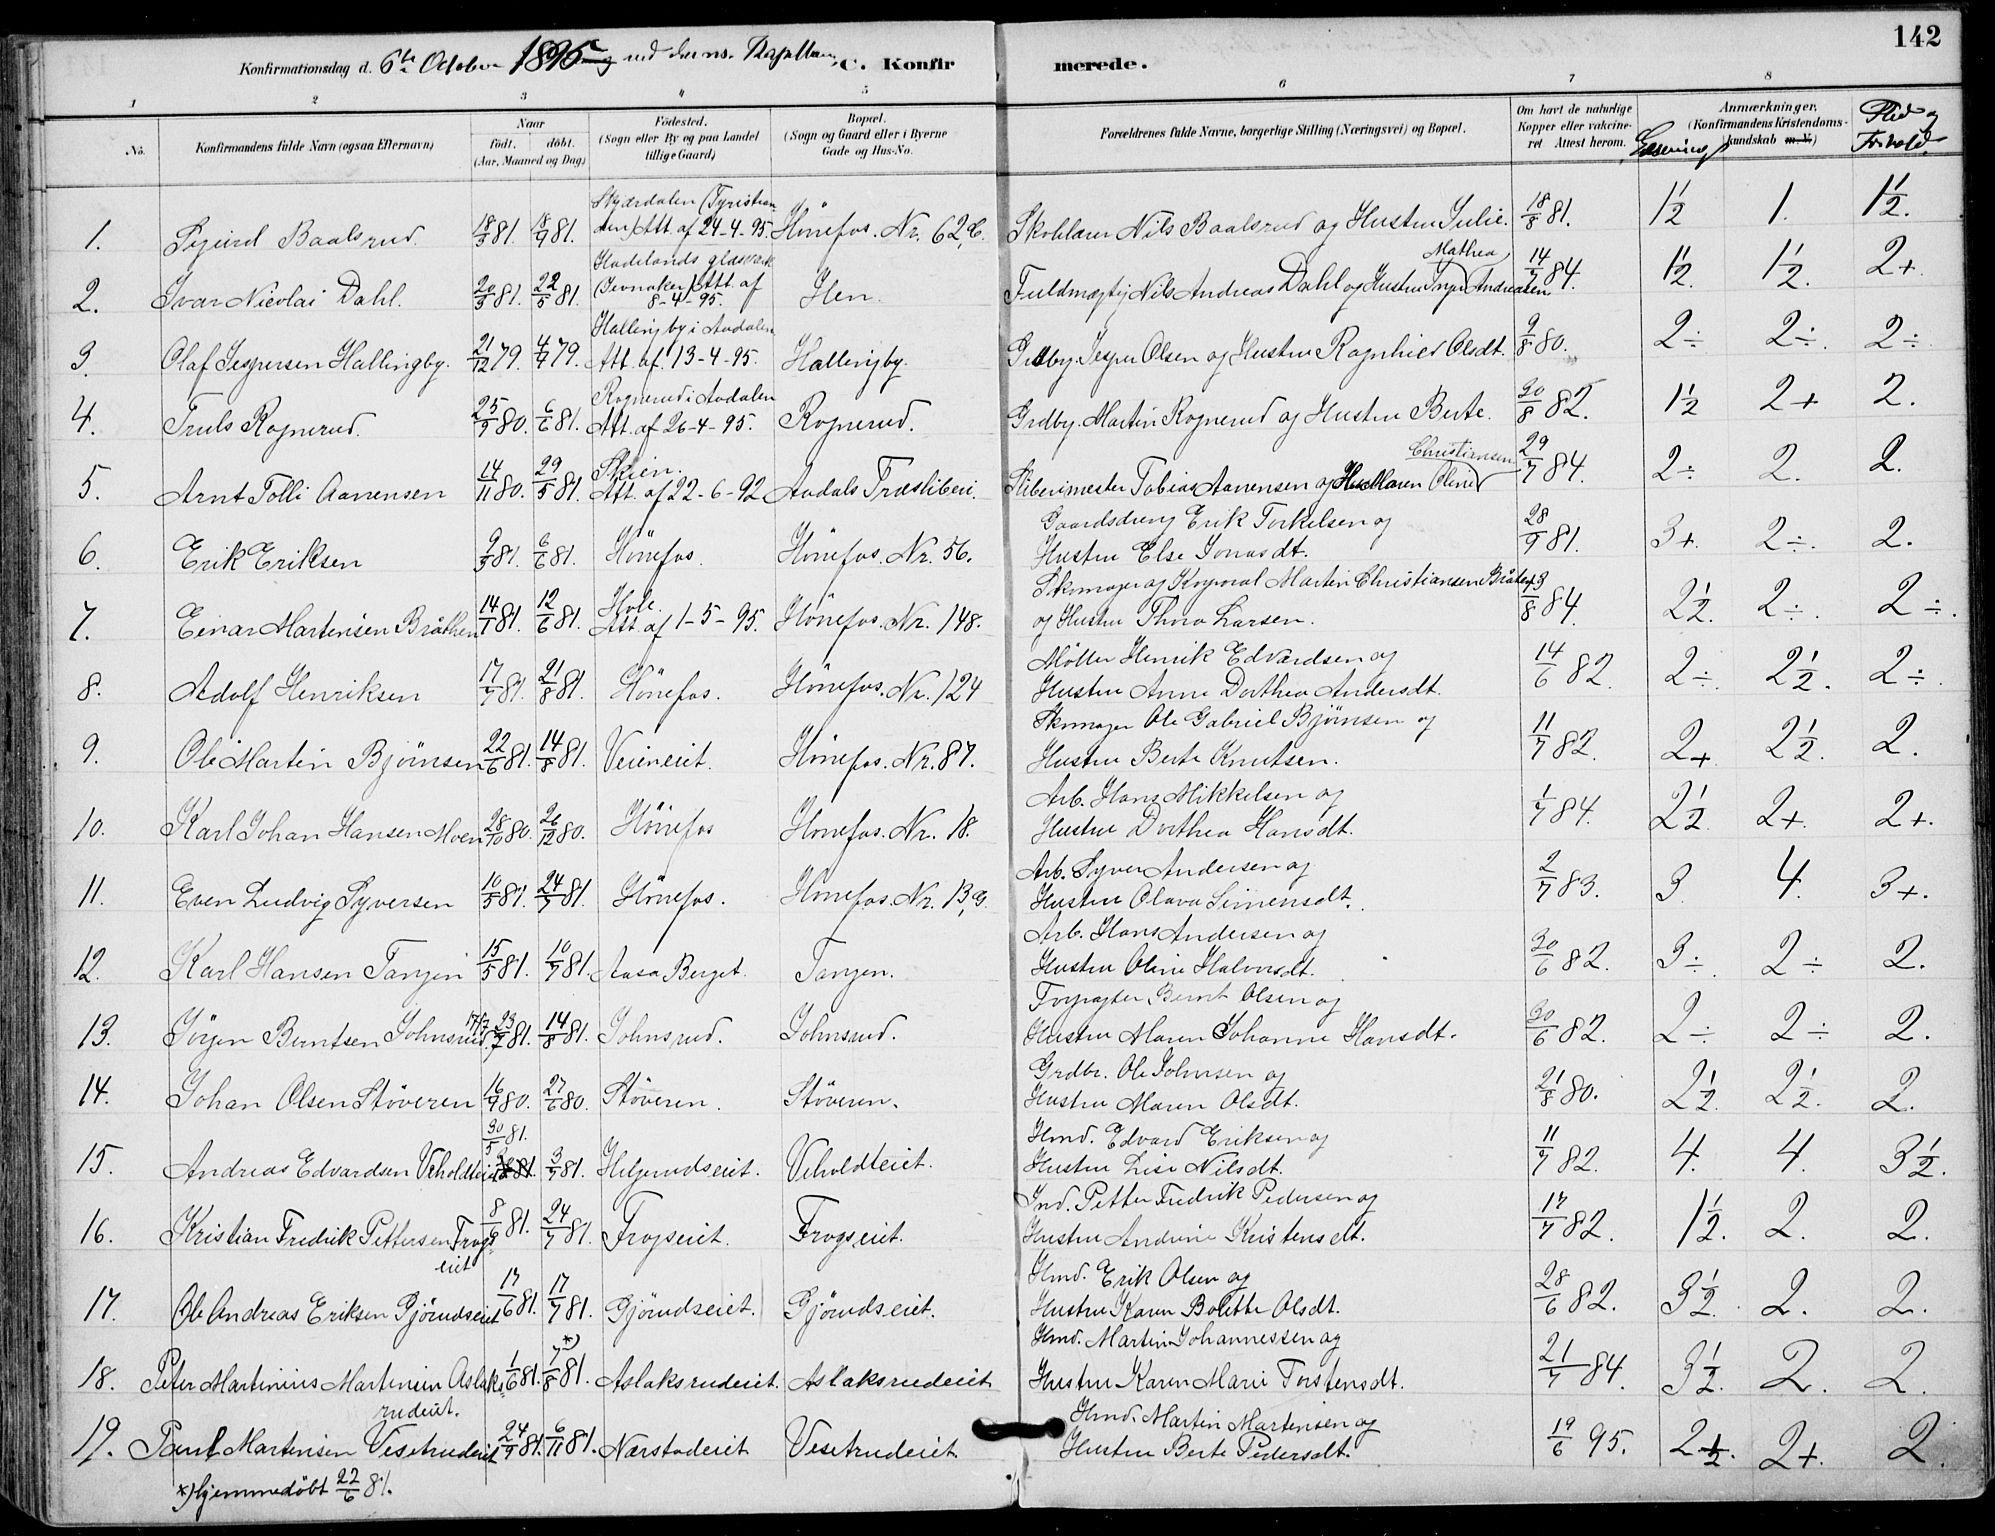 142
Konfirmationsdag d. 6te October 1895 ved pers. Kapellan C. Konfirmerede.
1 2 3 " 5 6 7 8
No. Konfirmandens fulde Navn (ogsaa Efternavn) Naar født. døbt. (Aar, Maaned og Dag) Fødested. (Sogn eller By og paa Landet tillige Gaard) Bopæl. (Sogn og Gaard eller i Byerne Gade og Hus-No. Forældrenes fulde Navne, borgerlige Stilling (Næringsvei) og Bopæl. Om havt de naturlige Kopper eller vaccineret Attest herom. Anmærkninger. (Konfirmandens Kristendomskundskab m. V.) Flid og Forhold.
1. Sigurd Baalsrud. 18/3 81. 18/9 81. (Tyristranden) Att. af 24-4-95. Hönefos. Nr. 62,C. Nils Baalsrud og Hustru Julie. 18/8 81. 1 1/2 1. 1 1/2.
2. Ivar Nicolai Dahl. 20/3 81. 22/5 81. Hadelands glasværk (Jevnaker) Att. af 8-4-95. Hen. Fuldmægtig Nils Andreas Dahl og Hustru Inga Mathea Andreasen 14/7 84. 1 1/2. 1 1/2. 2+
3. Olaf Jespersen Hallingby. 21/12 79. 4/9 79. Hallingby i Aadalen Att. af 13-4-95. Hallingby. Grdby. Jesper Olsen og Hustru Ragnhild Olsdt. 9/8 80. 2÷ 2÷. 2÷.
4. Truls Rognerud. 25/9 80. 6/6 81. Rognerud i Aadalen Att. af 26-4-95. Rognerud. Grdby. Martin Rognerud og Hustru Berte. 30/8 82. 1 1/2 2+ 2.
5. Arnt Tolli Aanensen 14/11 80. 29/5 81. Skien. Att. af 22-6-92 Aadals Træsliberi. Slibermester Tobias Aanensen og Hu. Maren Oline Christiansen 29/7 84. 2÷ 2. 2.
6. Erik Eriksen 9/3 81. 6/6 81. Hönefos. Hönefos. Nr. 56. Gaardsdreng Erik Torkelsen og
Hustru Else Jonasdt. 28/9 81. 3+. 2÷. 2.
7. Einar Martensen Bråthen 14/1 81. 12/6 81. Hole. Att af 1-5-95. Hönefos. Nr. 148. Skomager og Korporal Martin Christiansen Bråten
og Hustru Thora Larsen. 13/8 84. 2 1/2. 2÷. 2÷.
8. Adolf Henriksen 17/7 81. 21/8 81. Hönefos. Hönefos. Nr. 124 Møller Henrik Edvardsen og
Hustru Anne Dorthea Andersdt. 14/6 82. 2÷. 2 1/2. 2÷.
9. Ole Martin Bjørnsen 22/6 81. 14/8 81. Veieneiet. Hönefos. Nr. 87. Skomager Ole Gabriel Bjørnsen og
Hustru Berte Knutsen. 11/7 82. 2+ 2 1/2. 2.
10. Karl Johan Hansen Moen 28/10 80. 26/12 80. Hönefos Hönefos. Nr. 18. Arb. Hans Mikkelsen og
Hustru Dorthea Hansdt. 1/7 84. 2 1/2. 2+. 2+.
11. Even Ludvig Syversen 10/5 81. 24/7 81. Hönefos. Hönefos. Nr. 13,G. Arb. Syver Andersen og
Hustru Olava Simensdt. 2/7 83. 3. 4. 3+.
12. Karl Hansen Tangen 15/5 81. 10/7 81. Aasa Berget. Tangen. Arb. Hans Andersen og
Hustru Oline Halvorsdt. 30/6 82. 3÷. 2÷ 2.
13. Jörgen Berntsen Johnsrud. 23/7 81. 14/8 81. Johnsrud. Johnsrud. Forpagter Bernt Olsen og
Hustru Maren Johanne Hansdt. 30/6 82. 2÷ 2÷ 2.
14. Johan Olsen Støveren 16/4 80. 27/6 80. Støveren. Støveren. Grdbr. Ole Johnsen og
Hustru Maren Olsdt. 21/8 80. 2 1/2. 2 1/2. 2.
15. Andreas Edvardsen Veholdteiet 30/5 81. 3/7 81. Helgerudseiet. Veholdteiet. Hmd. Edvard Eriksen og
Hustru Lise Nilsdt. 11/7 82. 4. 4. 3 1/2.
16. Kristian Fredrik Pettersen Frogseiet 8/6 81. 24/7 81. Frogseiet. Frogseiet. Ind. Petter Fredrik Pedersen og
Hustru Andrine Kristensdt. 17/7 82. 1 1/2. 2. 2.
17. Ole Andreas Eriksen Gjörudseiet 17/6 81. 17/7 81. Gjörudseiet. Gjörudseiet. Hmd. Erik Olsen og
Hustru Karen Bolette Olsdt. 28/6 82. 3 1/2. 2. 2.
18. Peter Martinius Martensen Aslaksrudeiet. 1/6 81. *) 7/8 81. Aslaksrudeiet. Aslaksrudeiet Hmd. Martin Johannessen og
Hustru Karen Marie Torstensdt. 21/7 84. 3 1/2. 2. 2.
19. Paul Martensen Vesetrudeiet 24/9 81. 6/11 81. Nærstadeiet Vesetrudeiet. Hmd. Martin Martensen og
Hustru Berte Pedersdt. 19/6 95. 2 1/2. 2+. 2.
*) hjemmedöbt 22/6 81.